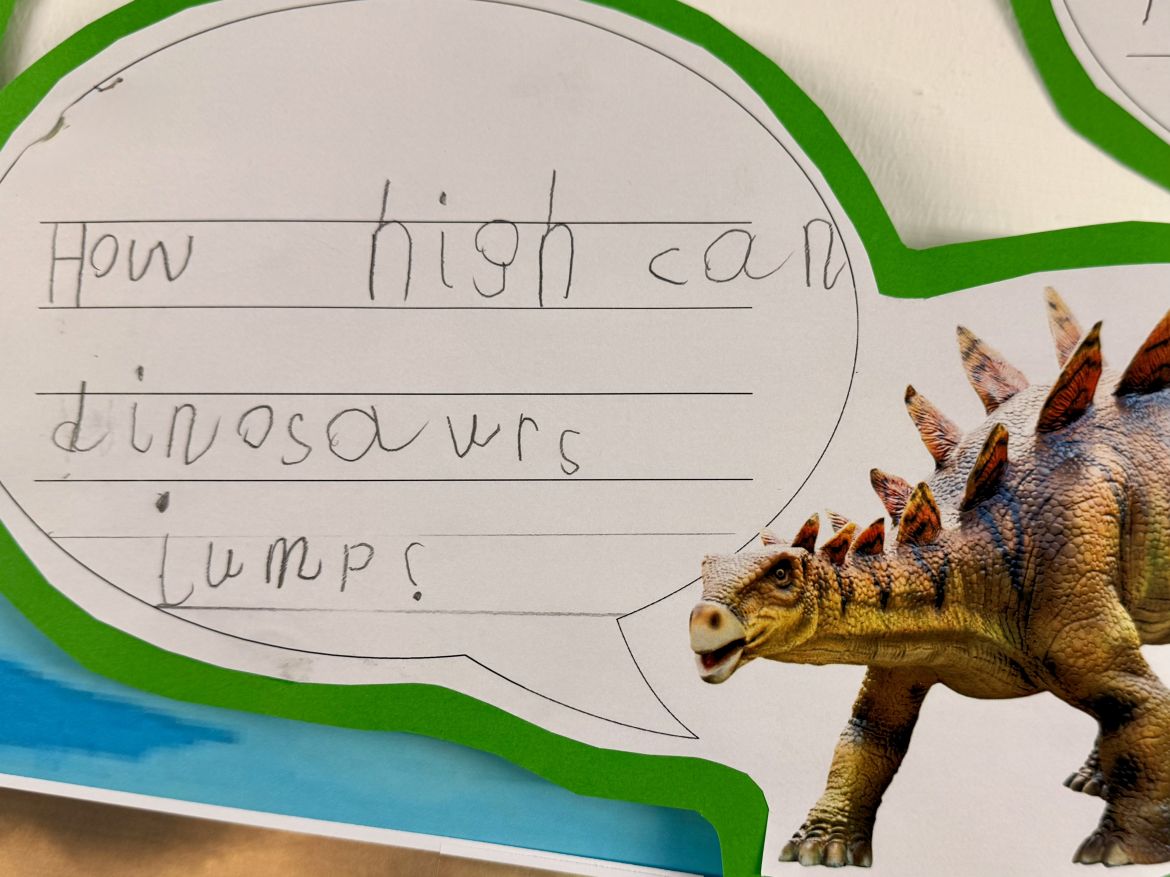 How high can
dinosaurs
jump?